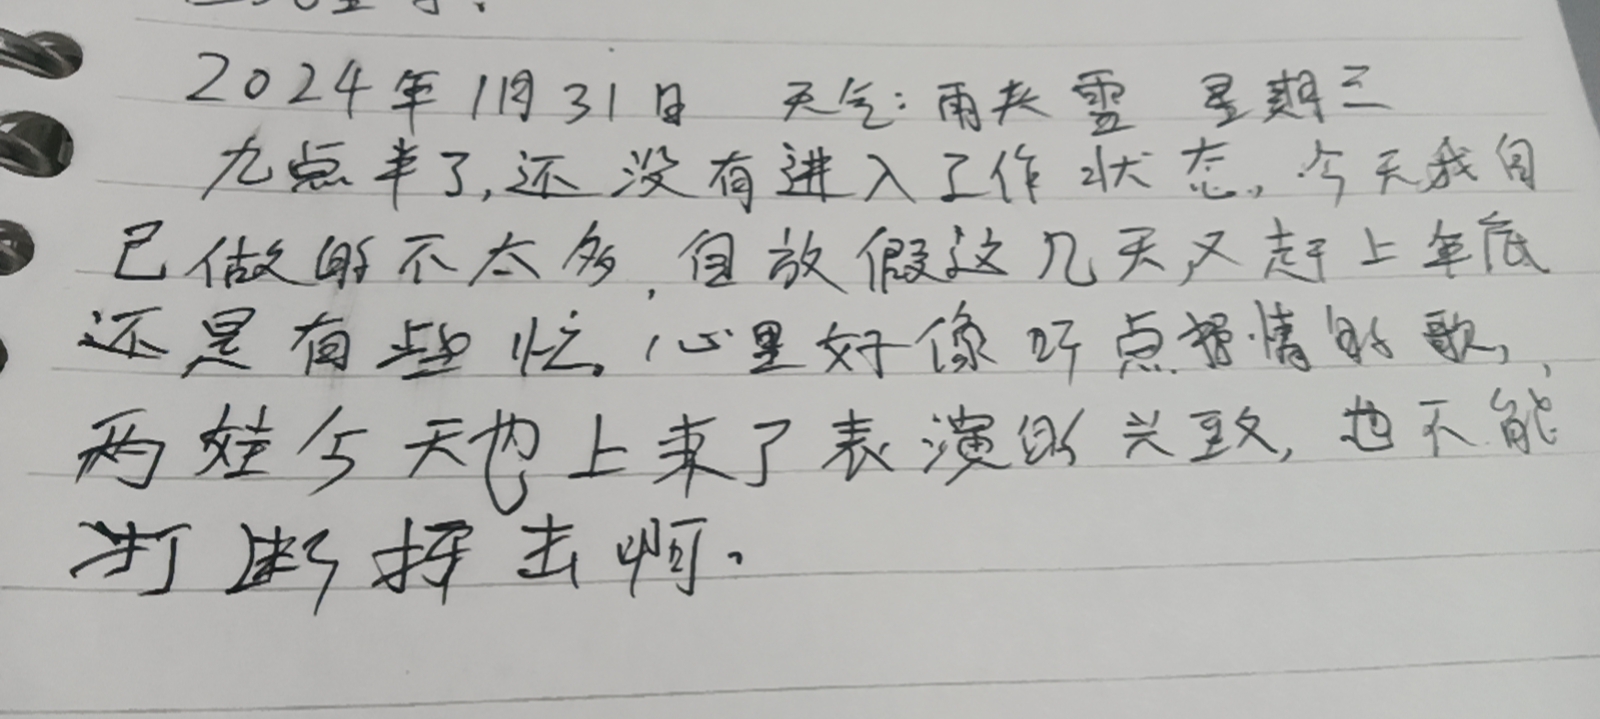 2024年1月31日 天气:雨夹雪 星期三
九点半了,还没有进入工作状态,今天我自
己做的不太多,但放假这几天,又赶上年底
还是有些忙。心里好像听点抒情的歌,
两娃今天也上来了表演的兴致,也不能
打断抨击啊。